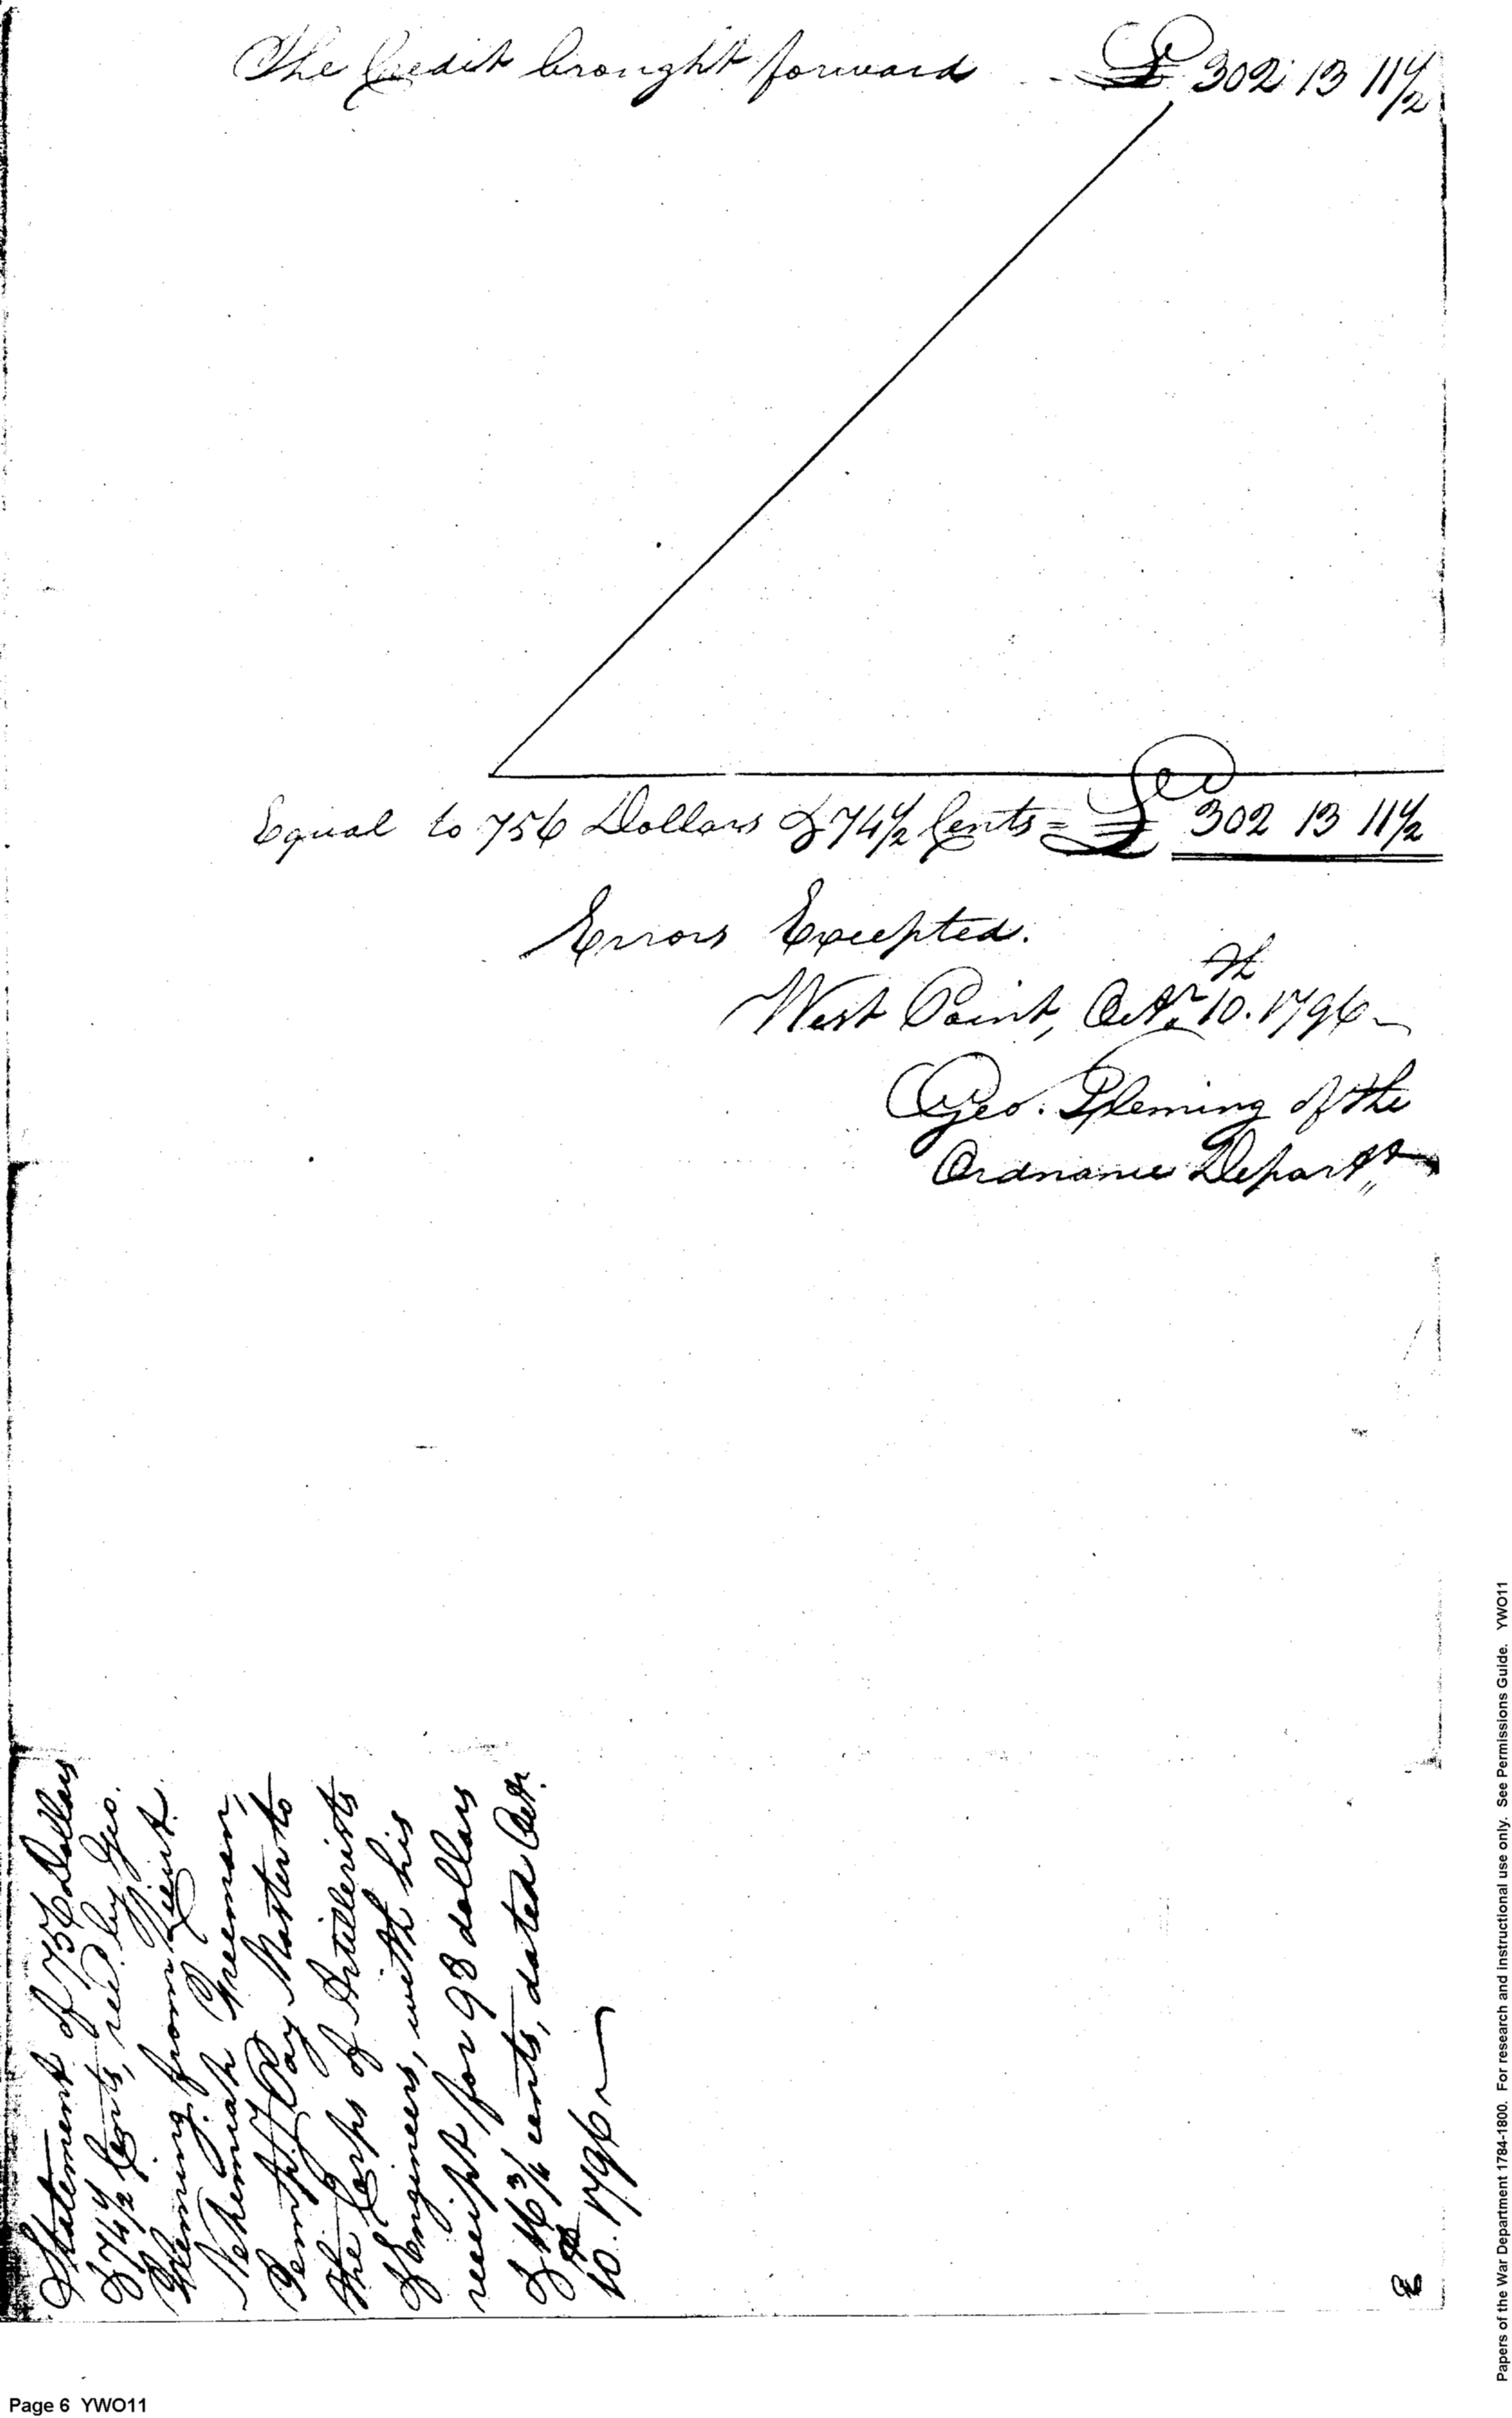 The Credit brought forward - - £ 302 13 11 1/2
Equal to 756 Dollars & 74 1/2 Cents = £ 302 13 11 1/2
Errors Excepted.
West Point, Octr. 10th. 1796 -
Geo. Fleming of the
Ordnance Departt
Statement of 756 Dollars
& 74 1/2 Cents, recd. by Geo.
Fleming from Lieut.
Nehemiah Freeman,
Pay Master to
the Corps of Artillerists
& Engineers, with his
receipt for 98 dollars
& 16 3/4 cents, dated Octr.
10th. 1796 -
Page 6 YWO11
Papers of the War Department 1784-1800. For research and instructional use only. See Permissions Guide. YWO11